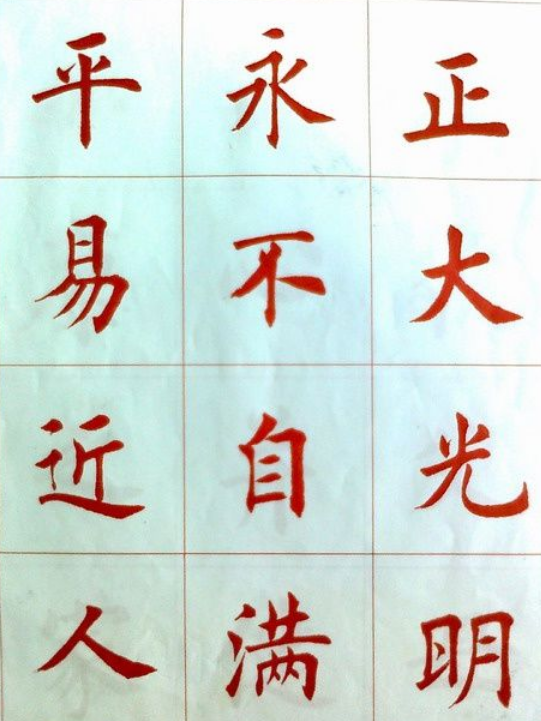 正大光明
永不自满
平易近人